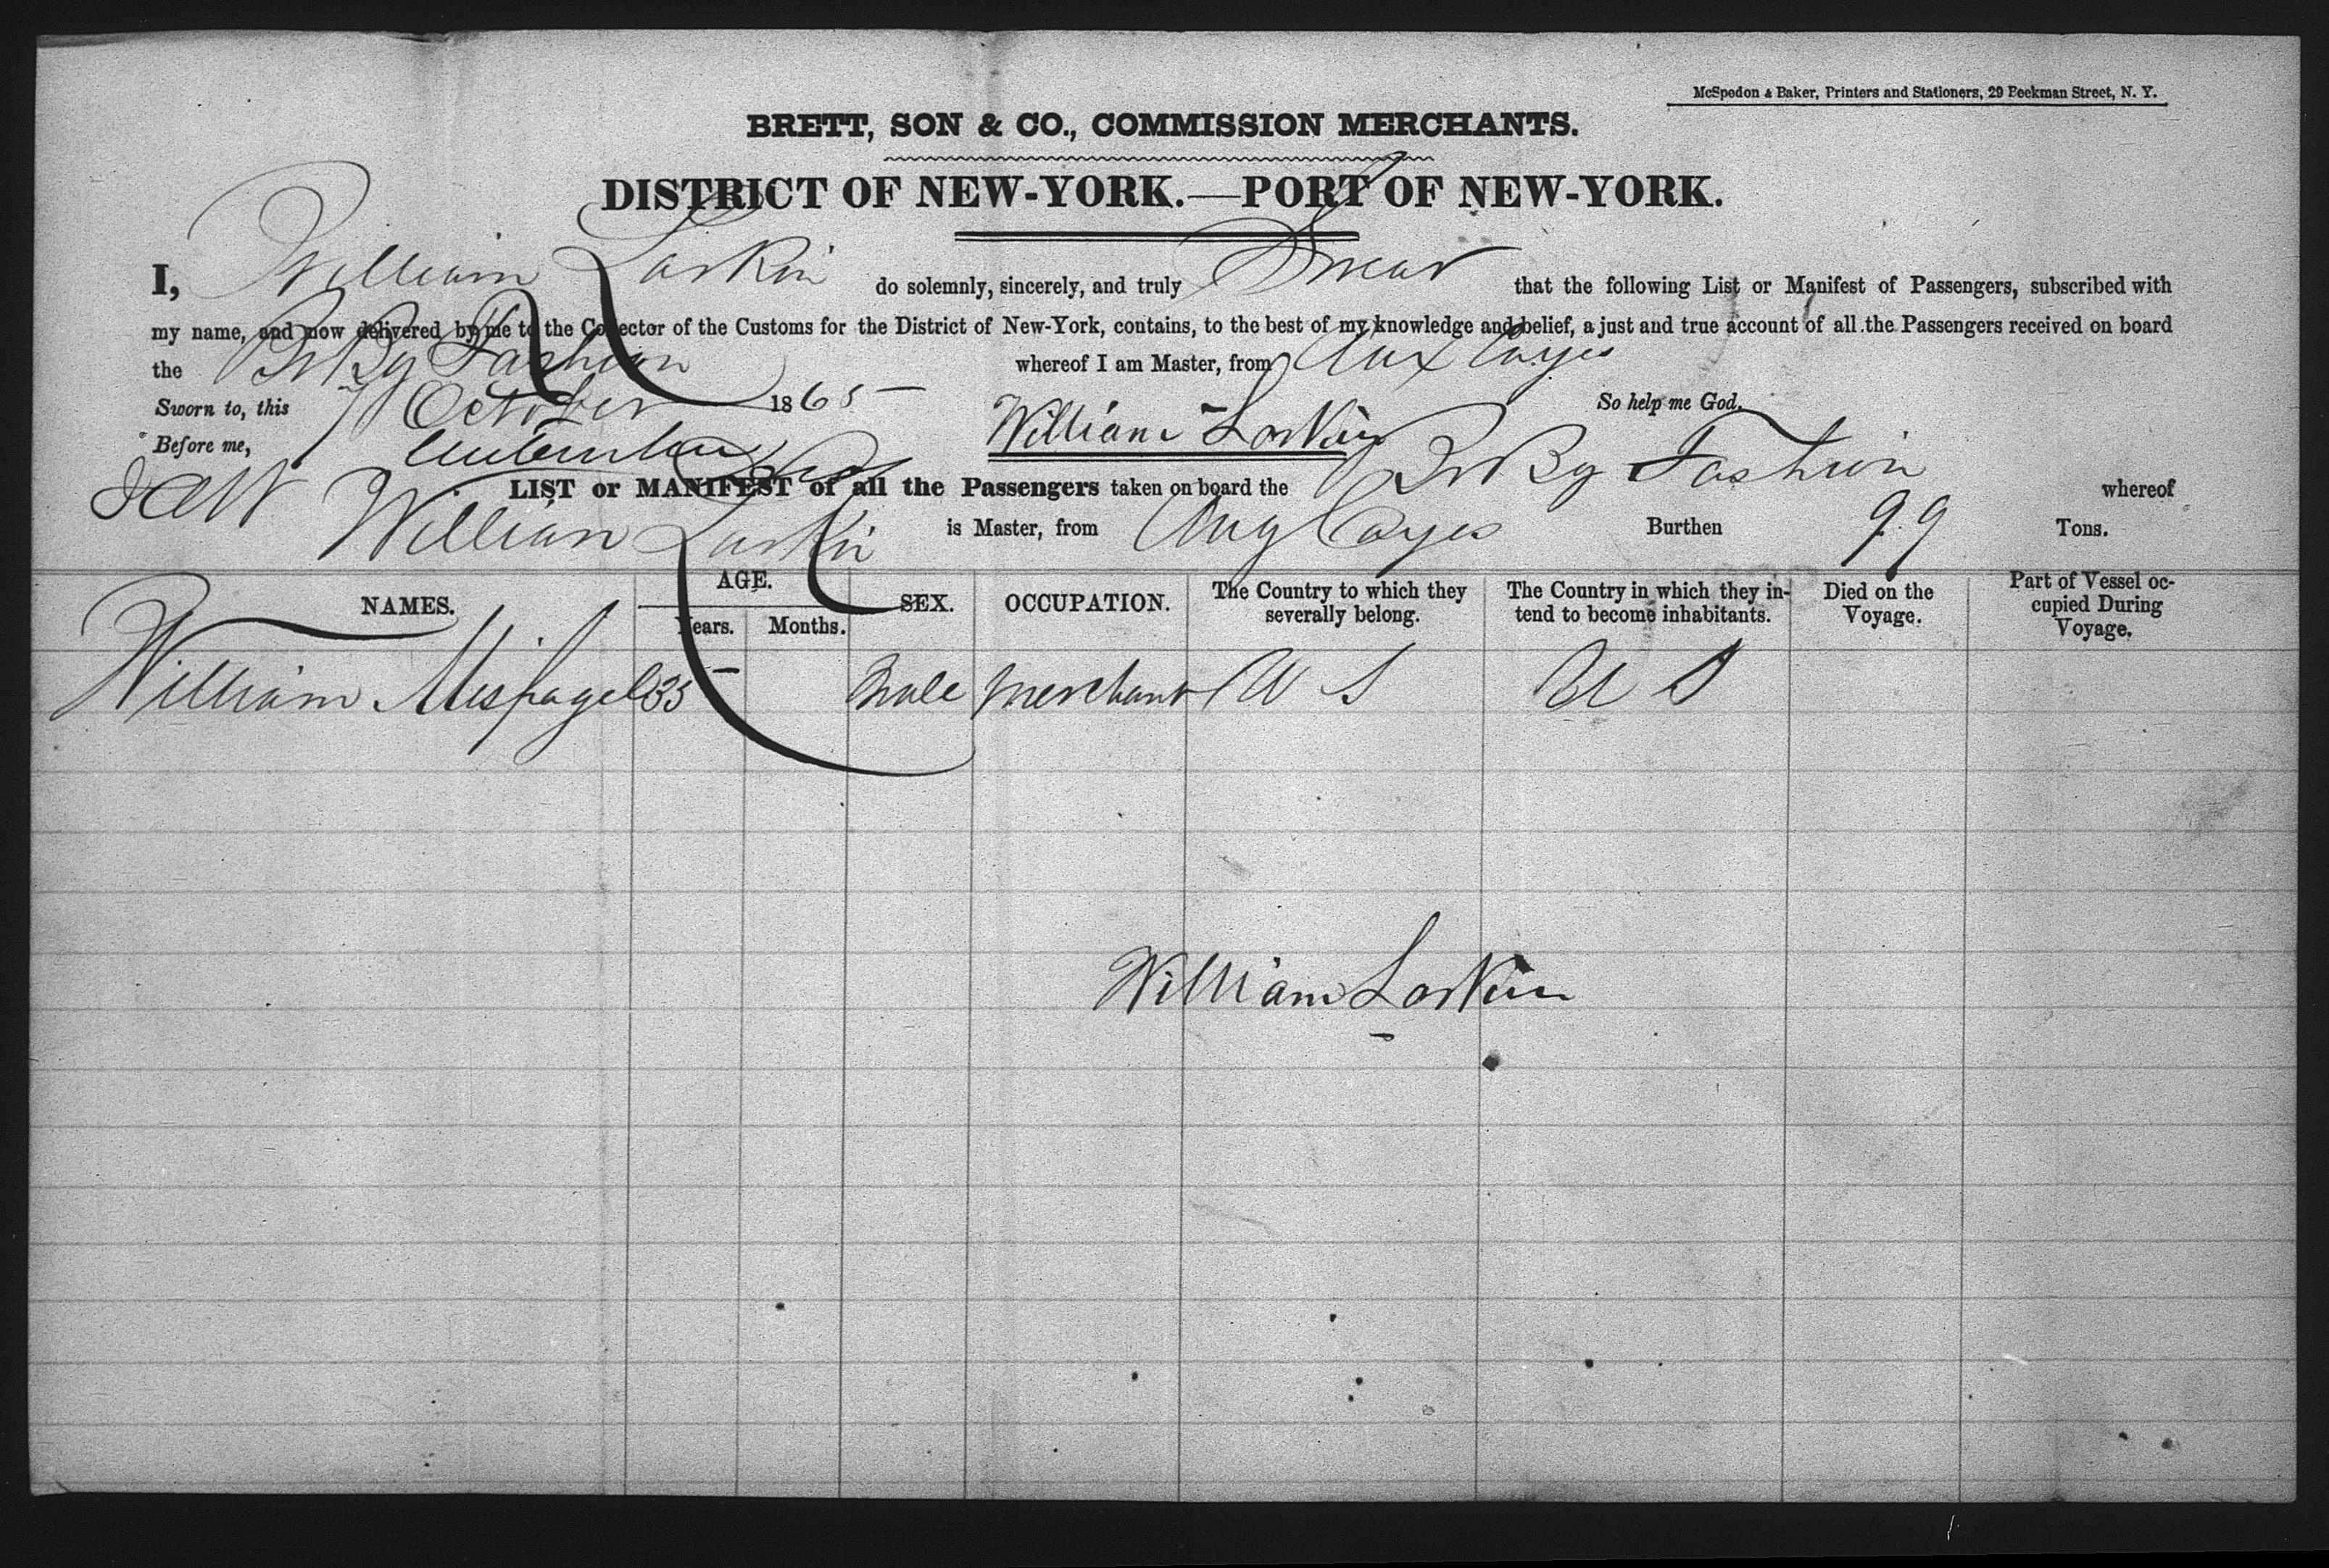 McSpedon & Baker, Printers and Stationers, 29 Beekman Street, N. Y.
BRETT, SON & CO., COMMISSION MERCHANTS.
DISTRICT OF NEW-YORK.—PORT OF NEW-YORK.
I, William Larkin do solemnly, sincerely, and truly Swear that the following List or Manifest of Passengers, subscribed with
my name, and now delivered by me to the Collector of the Customs for the District of New-York, contains, to the best of my knowledge and belief, a just and true account of all the Passengers received on board
the Br Bg Fashion whereof I am Master, from Aux Cayes
Sworn to, this 7 October 1865 William Larkin So help me God.
Before me,
LIST or MANIFEST of all the Passengers taken on board the Br Bg Fashion whereof
William Larkin is Master, from Aux Cayes Burthen 99 Tons.
NAMES. AGE. Years. Months. SEX. OCCUPATION. The Country to which they severally belong. The Country in which they intend to become inhabitants. Died on the Voyage. Part of Vessel occupied During Voyage.
William Mispagel 35 Male Merchant U S U S
William Larkin